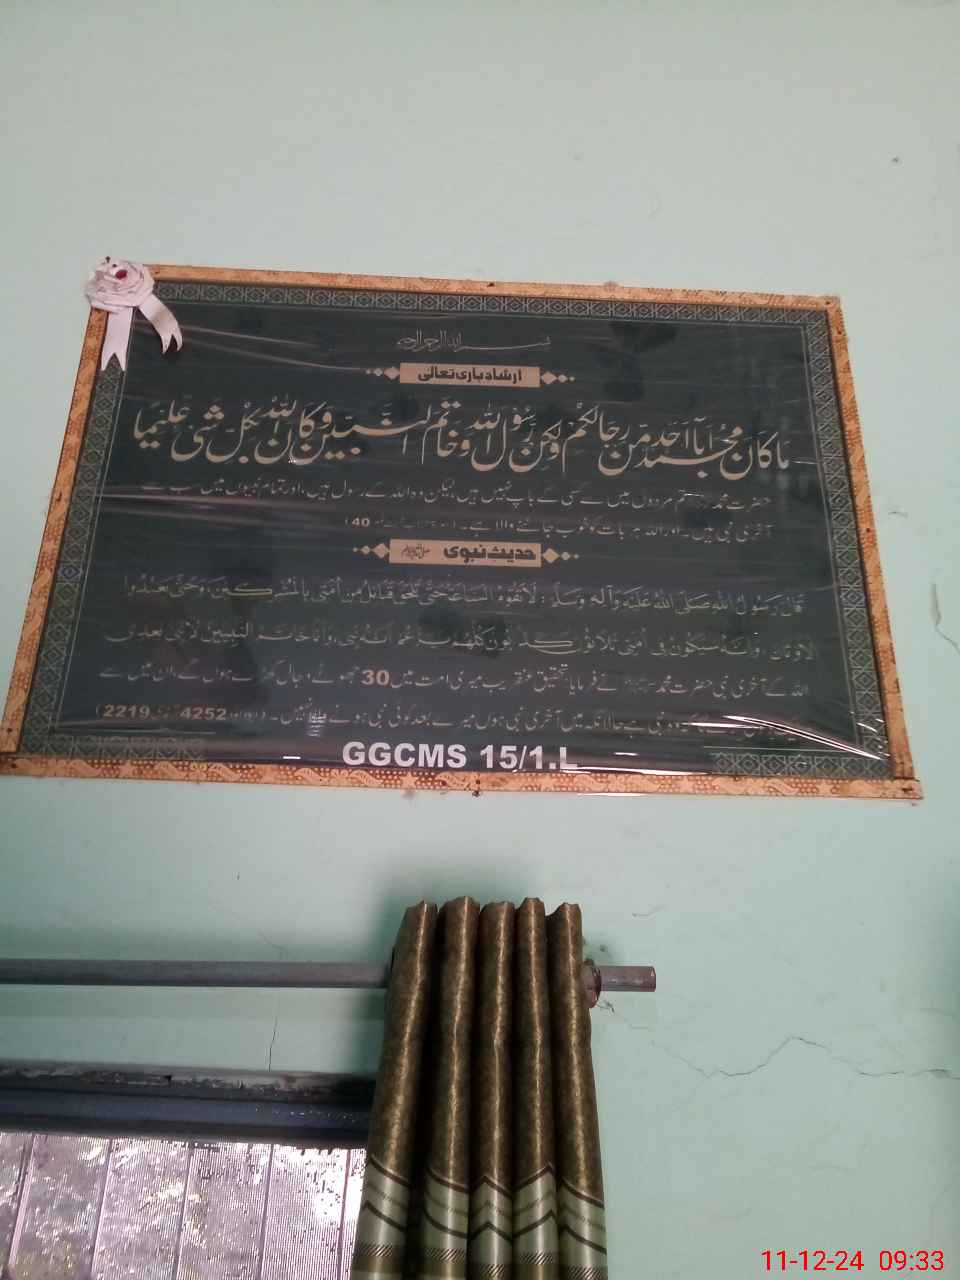 بسم الله الرحمن الرحيم
ارشاد باری تعالیٰ
مَا كَانَ مُحَمَّدٌ اَبَآ اَحَدٍ مِّنْ رِّجَالِكُمْ وَلٰكِنْ رَّسُوْلَ اللّٰهِ وَخَاتَمَ النَّبِيّٖنَ وَكَانَ اللّٰهُ بِكُلِّ شَىْءٍ عَلِيْمًا
حضرت محمد تم مردوں میں سے کسی کے باپ نہیں ہیں، لیکن وہ اللہ کے رسول ہیں، اور تمام نبیوں میں سب سے
آخری نبی ہیں۔ اور اللہ ہر بات کو خوب جاننے والا ہے۔ (40)
حدیث نبوی ﷺ
قَالَ رَسُوْلُ اللهِ صَلَّى اللهُ عَلَيْهِ وَآلِهٖ وَسَلَّمَ: لَا تَقُوْمُ السَّاعَةُ حَتّٰى تَلْحَقَ قَبَائِلُ مِنْ اُمَّتِيْ بِالْمُشْرِكِيْنَ، وَحَتّٰى يَعْبُدُوا
الْاَوْثَانَ، وَاِنَّهٗ سَيَكُوْنُ فِيْ اُمَّتِيْ ثَلَاثُوْنَ كَذَّابُوْنَ كُلُّهُمْ يَزْعُمُ اَنَّهٗ نَبِيٌّ، وَاَنَا خَاتَمُ النَّبِيِّيْنَ لَا نَبِيَّ بَعْدِيْ
اللہ کے آخری نبی حضرت محمد نے فرمایا تحقیق عنقریب میری امت میں 30 جھوٹے دجال کھڑے ہوں گے، ان میں سے
نبی ہے حالانکہ میں آخری نبی ہوں میرے بعد کوئی نبی ہونے والا نہیں۔ (4252 2219)
GGCMS 15/1.L
11-12-24 09:33